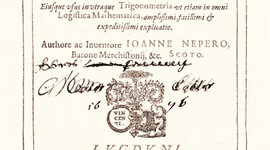 Ejusque usus in utraque Trigonometria; ut etiam in omni
Logistica Mathematica, amplissimi, facillimi &
expeditissimi explicatio.
Authore ac Inventore IOANNE NEPERO,
Barone Merchistonii, &c. SCOTO.
16 46
VIN
CENTI
LVGDVNI